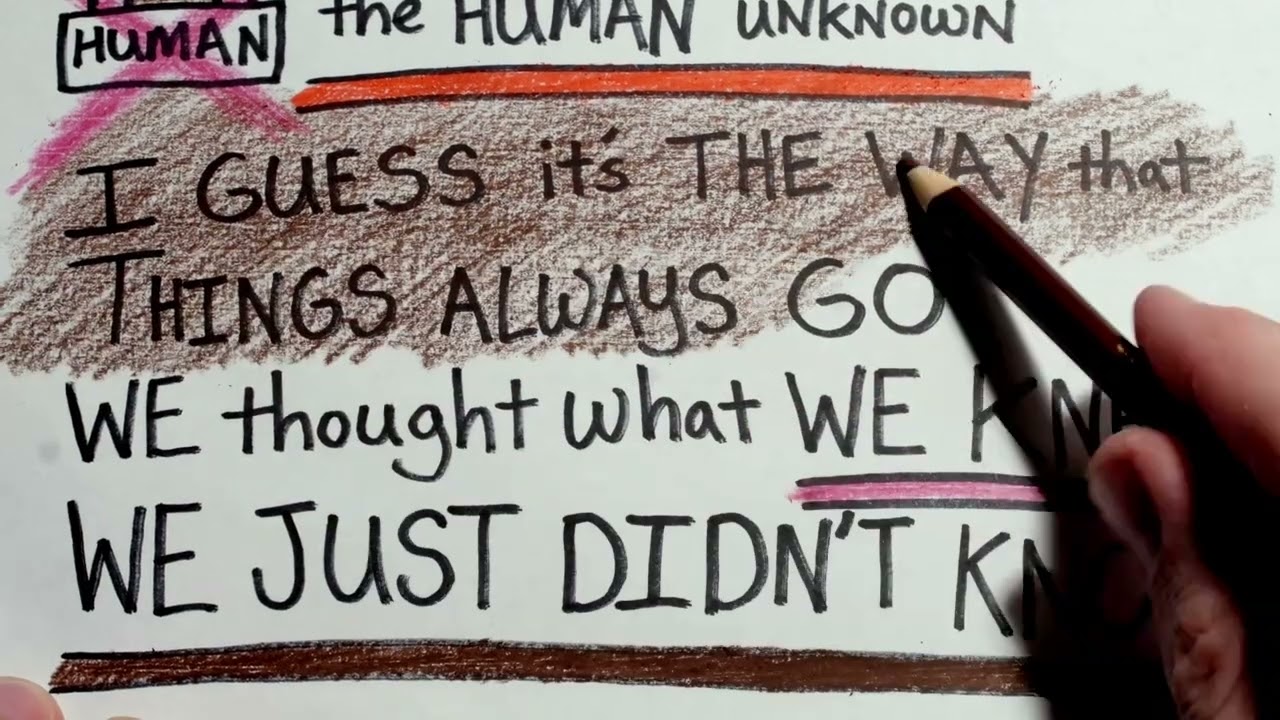 HUMAN the HUMAN UNKNOWN
I GUESS it's THE WAY that
THINGS ALWAYS GO
WE thought what WE
WE JUST DIDN'T